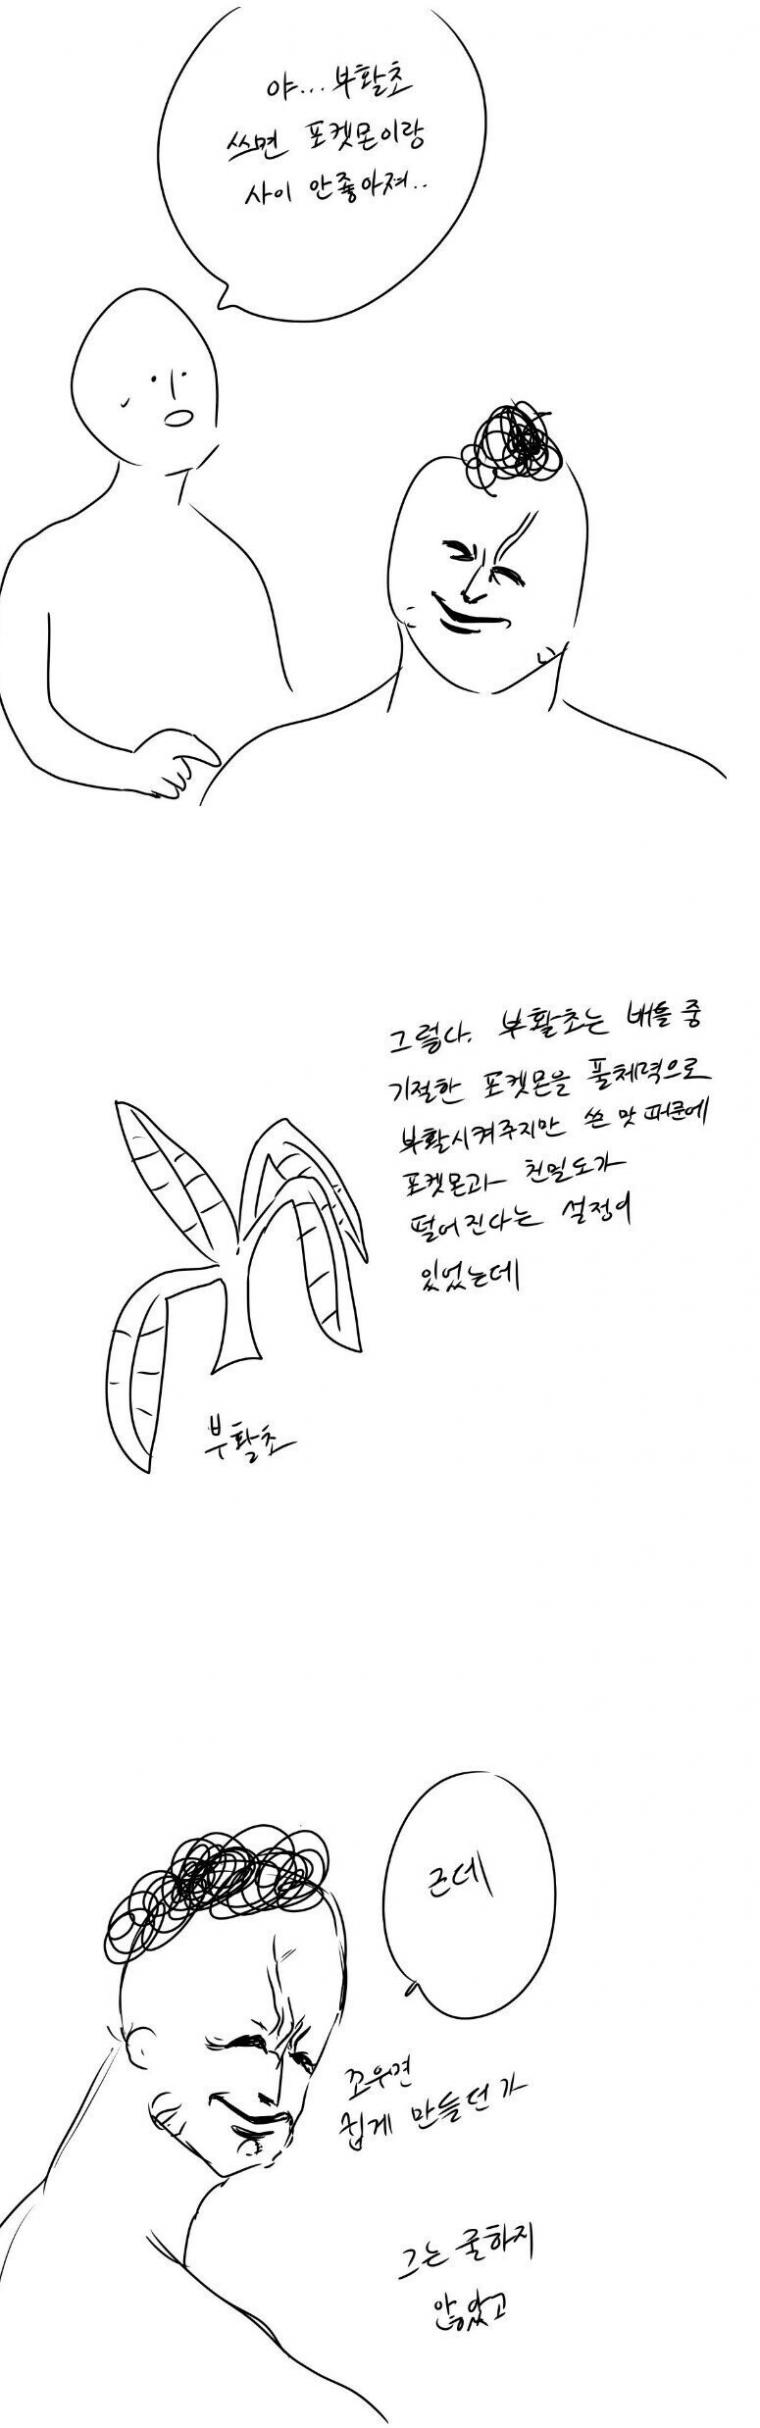 야...부활초
쓰면 포켓몬이랑
사이 안좋아져..
그렇다. 부활초는 배틀 중
기절한 포켓몬을 풀체력으로
부활시켜주지만 쓴 맛 때문에
포켓몬과 친밀도가
떨어진다는 설정이
있었는데
부활초
근데
꼬우면
쉽게 만들던가
그는 굴하지
않았고